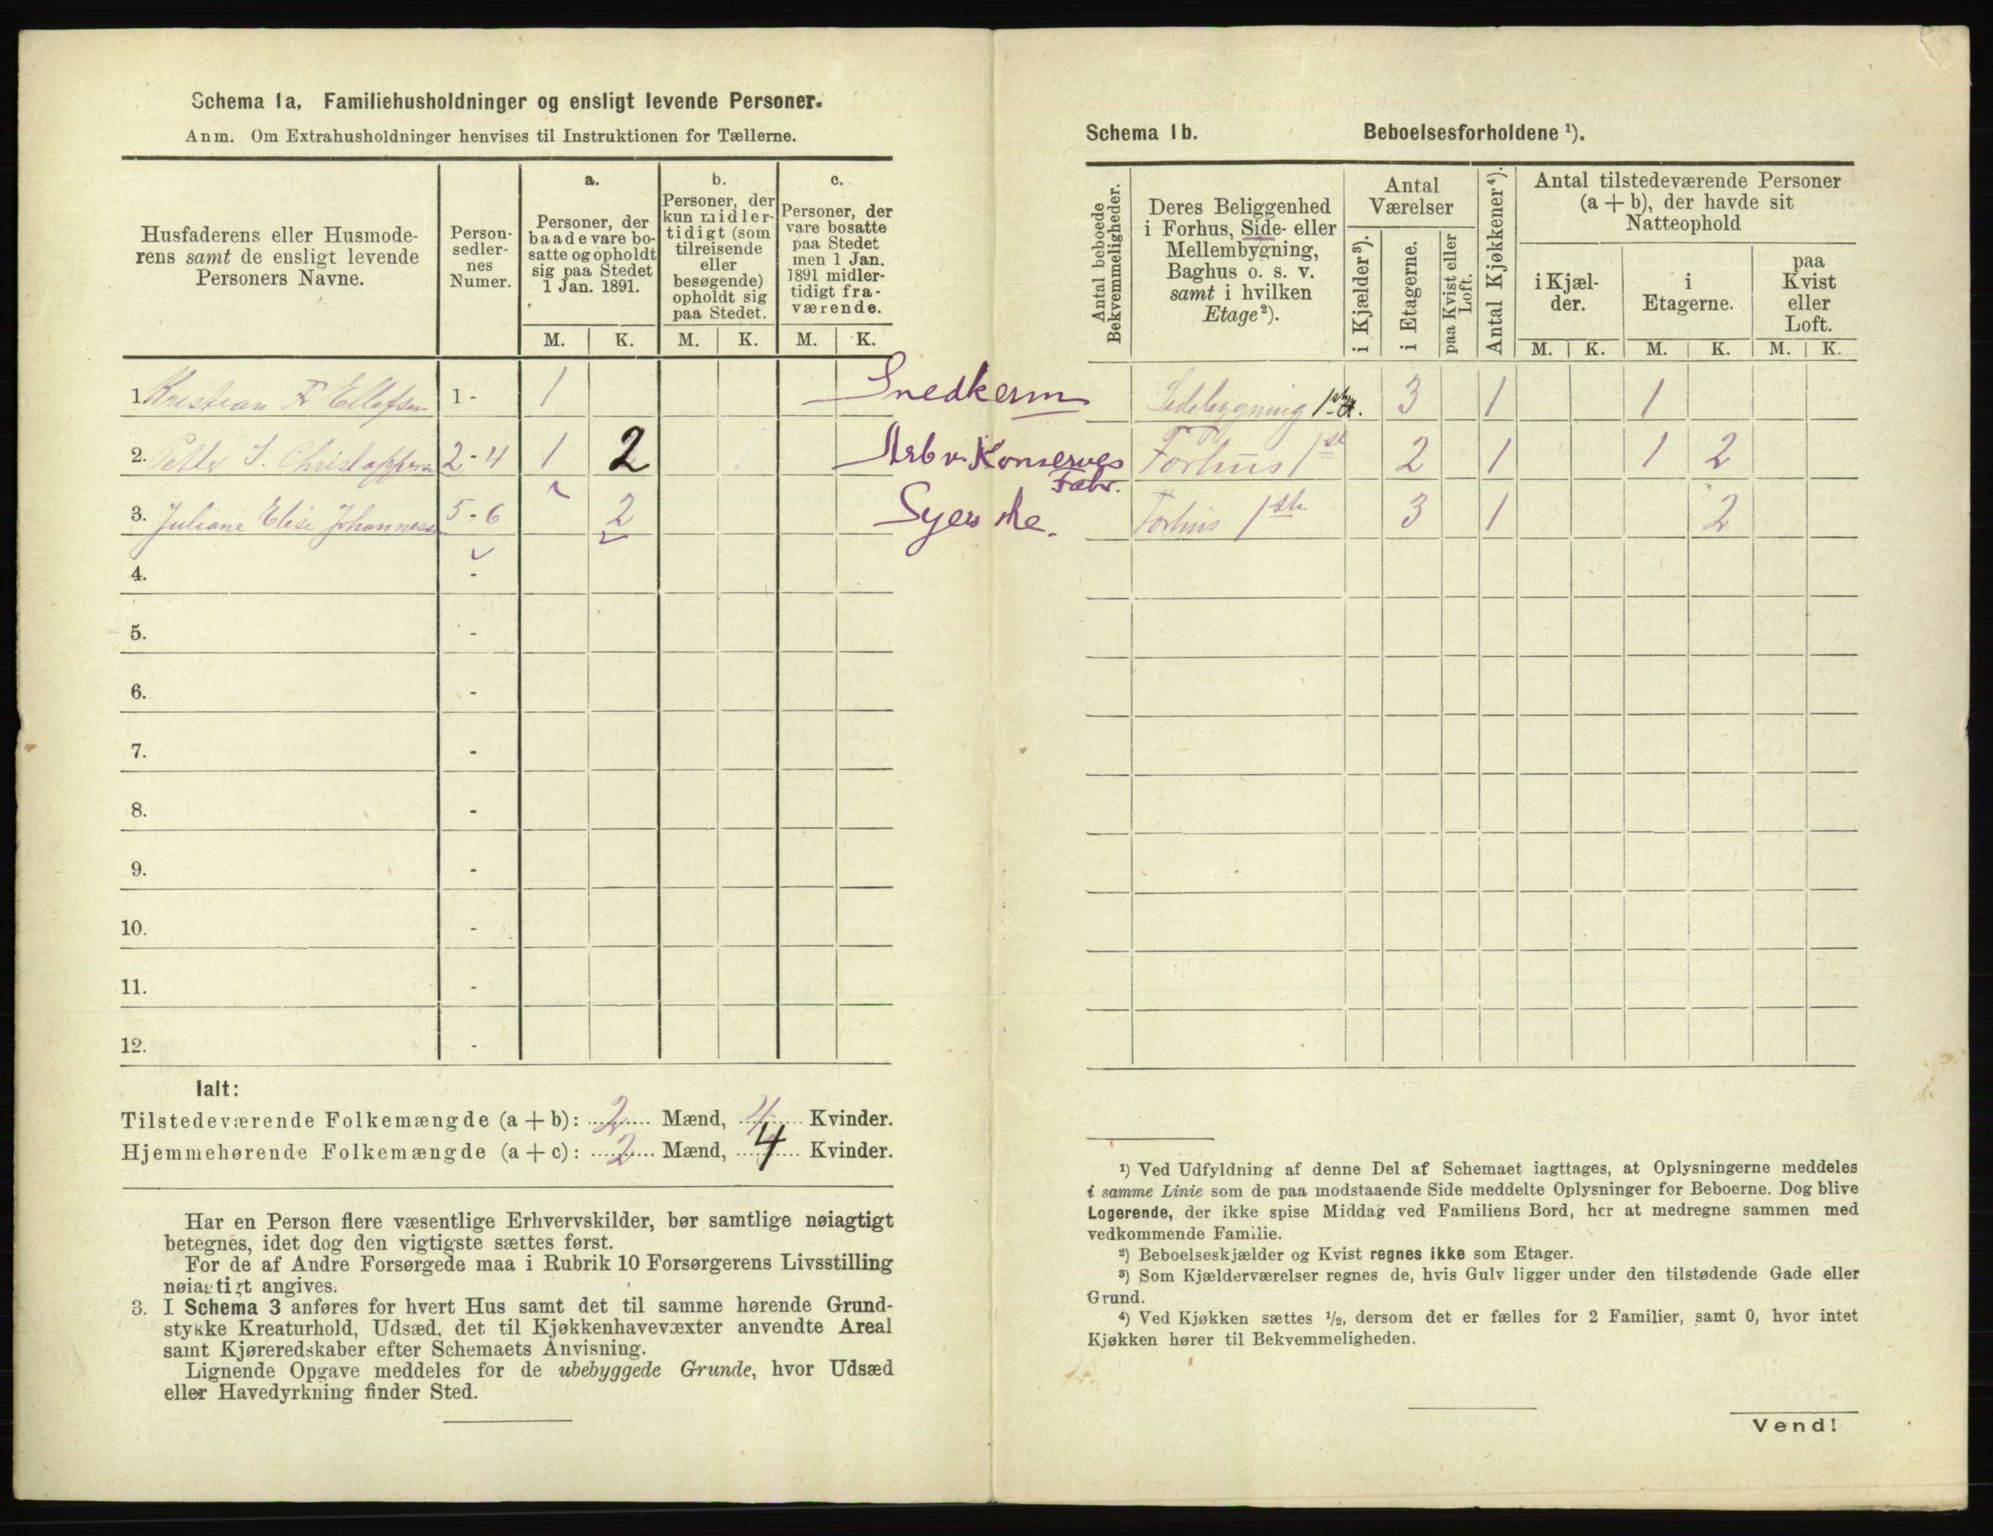 Schema 1a. Familiehusholdninger og ensligt levende Personer.
Anm. Om Extrahusholdninger henvises til Instruktionen for Tællerne.
Husfaderens eller Husmode-
rens samt de ensligt levende
Personers Navne.
Person-
sedler-
nes
Numer.
a.
Personer, der
baade vare bo-
satte og opholdt
sig paa Stedet
1 Jan. 1891.
b.
Personer, der
kun midler-
tidigt (som
tilreisende
eller
besøgende)
opholdt sig
paa Stedet.
c.
Personer, der
vare bosatte
paa Stedet
men 1 Jan.
1891 midler-
tidigt fra-
værende.
M. K. M. K. M. K.
1. Kristian F Ellefsen 1 - 1 Snedkerm
2. Petter S. Christoffersen 2-4 1 2 Arb v. Konserves
Fabr.
3. Juliane Elise Johannessen 5-6 2 Syerske.
4. -
5. -
6. -
7. -
8. -
9. -
10. -
11. -
12. -
Ialt:
Tilstedeværende Folkemængde (a + b): 2 Mænd, 4 Kvinder.
Hjemmehørende Folkemængde (a + c): 2 Mænd, 4 Kvinder.
Har en Person flere væsentlige Erhvervskilder, bør samtlige nøiagtigt
betegnes, idet dog den vigtigste sættes først.
For de af Andre Forsørgede maa i Rubrik 10 Forsørgerens Livsstilling
nøiagtigt angives.
3. I Schema 3 anføres for hvert Hus samt det til samme hørende Grund-
stykke Kreaturhold, Udsæd, det til Kjøkkenhavevæxter anvendte Areal
samt Kjøreredskaber efter Schemaets Anvisning.
Lignende Opgave meddeles for de ubebyggede Grunde, hvor Udsæd
eller Havedyrkning finder Sted.
Schema 1b. Beboelsesforholdene ¹).
Antal beboede
Bekvemmeligheder.
Deres Beliggenhed
i Forhus, Side- eller
Mellembygning,
Baghus o. s. v.
samt i hvilken
Etage²).
Antal
Værelser
i Kjælder³).
i Etagerne.
paa Kvist eller
Loft.
Antal Kjøkkener⁴).
Antal tilstedeværende Personer
(a + b), der havde sit
Natteophold
i Kjæl-
der.
i
Etagerne.
paa
Kvist
eller
Loft.
M. K. M. K. M. K.
Sidebygning 1ste 3 1 1
Forhus 1st 2 1 1 2
Forhus 1ste 3 1 2
¹) Ved Udfyldning af denne Del af Schemaet iagttages, at Oplysningerne meddeles
i samme Linie som de paa modstaaende Side meddelte Oplysninger for Beboerne. Dog blive
Logerende, der ikke spise Middag ved Familiens Bord, her at medregne sammen med
vedkommende Familie.
²) Beboelseskjælder og Kvist regnes ikke som Etager.
³) Som Kjælderværelser regnes de, hvis Gulv ligger under den tilstødende Gade eller
Grund.
⁴) Ved Kjøkken sættes ½, dersom det er fælles for 2 Familier, samt 0, hvor intet
Kjøkken hører til Bekvemmeligheden.
Vend!